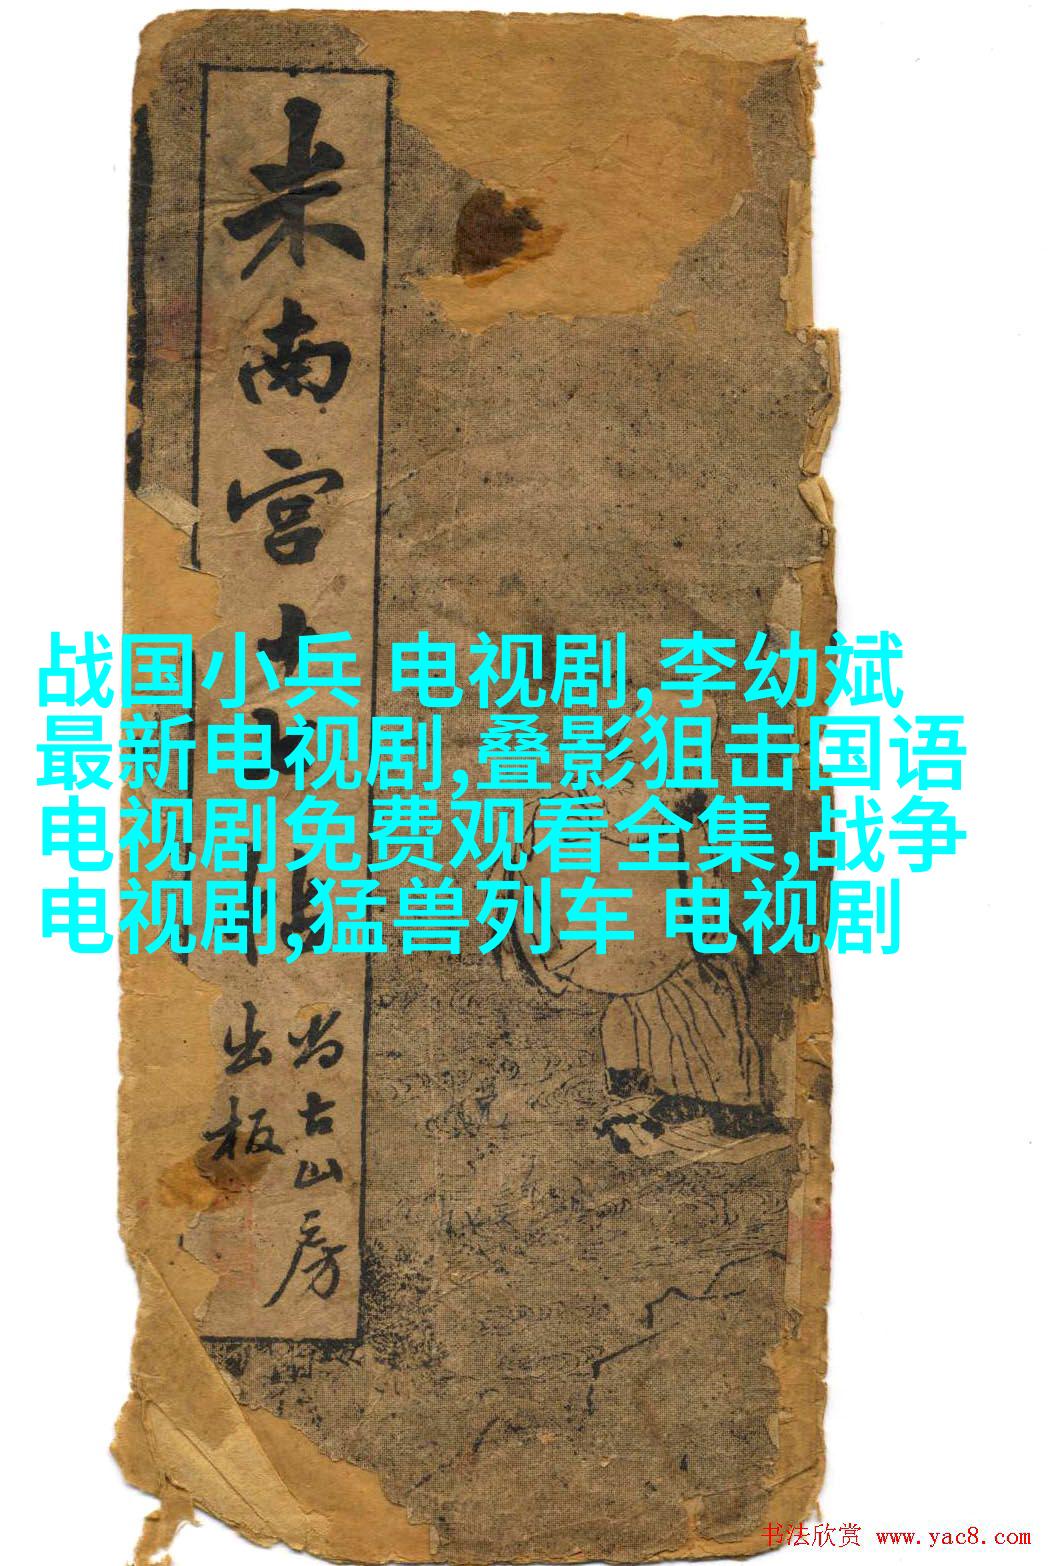 米南宫十七帖
尚古山房
出板
战国小兵 电视剧,李幼斌
最新电视剧,叠影狙击国语
电视剧免费观看全集,战争
电视剧,猛兽列车 电视剧
书法欣赏 www.yac8.com